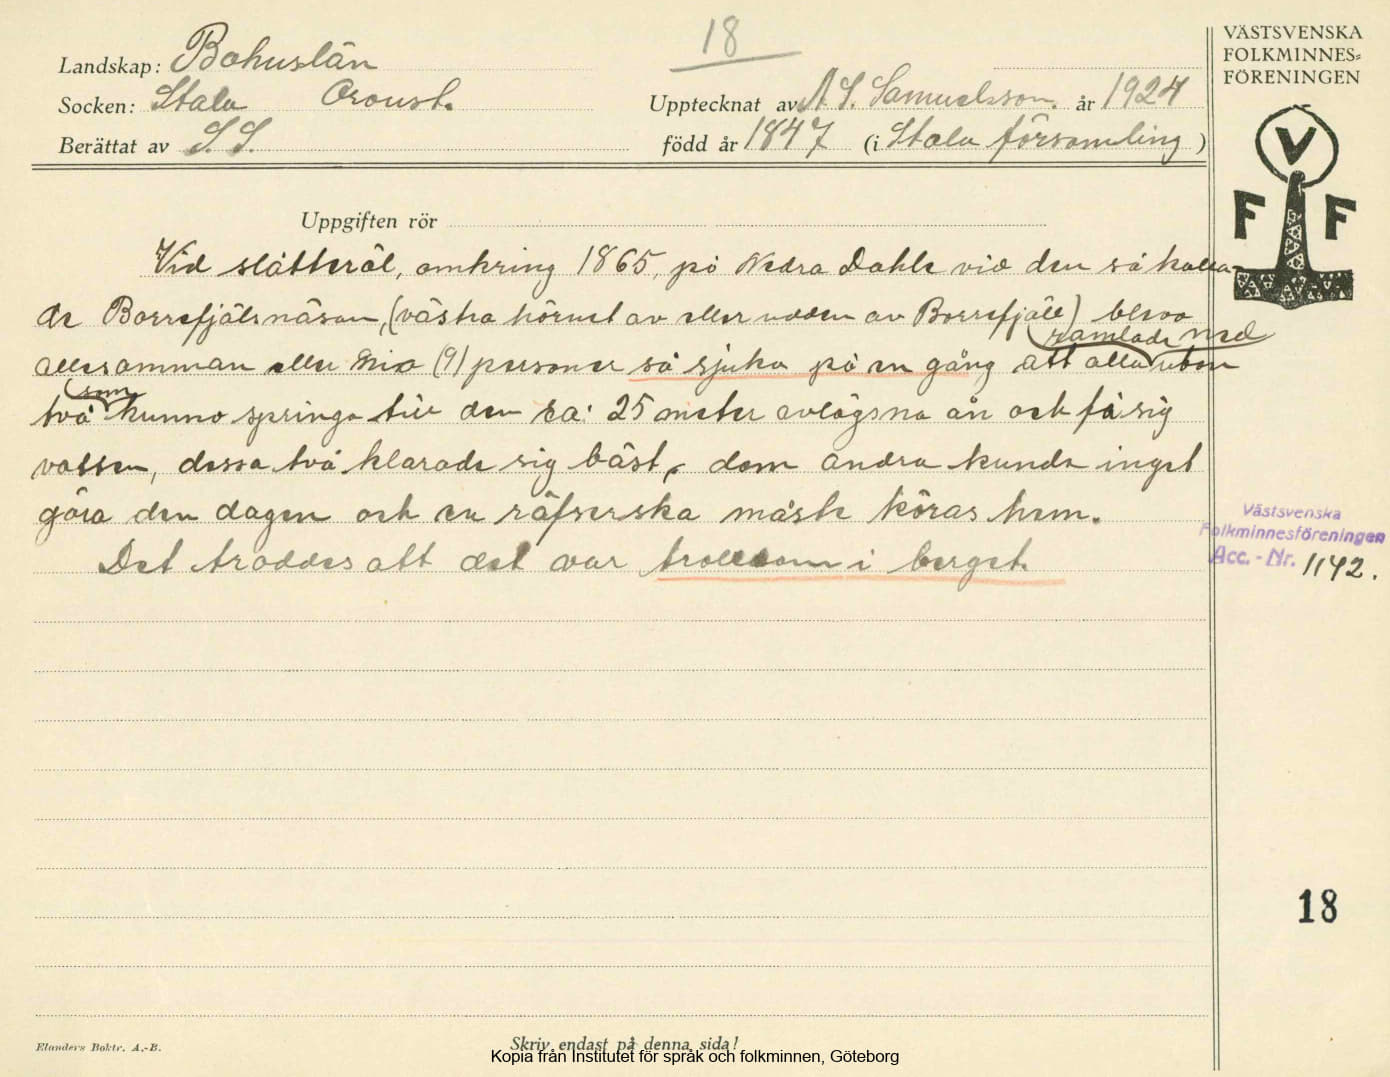 18
VÄSTSVENSKA
FOLKMINNES=
FÖRENINGEN
Landskap: Bohuslän
Socken: Stala Oroust.
Upptecknat av A. S. Samuelsson. år 1924
Berättat av S. S.
född år 1847 (i Stala församling)
V
F F
Uppgiften rör
Vid slåtteröl, omkring 1865, på Nedra Dahle vid den så kalla-
de Borrefjälsnäsan, (västra hörnet av eller udden av Borrefjäll) blevo
ramlade ned
allesamman eller nio (9) personer så sjuka på en gång att alla utom
som
två kunno springa till den ca: 25 meter avlägsna ån och få sig
vatten, dessa två klarade sig bäst, dom andra kunde inget
göra den dagen och en räfserska måste köras hem.
Det troddes att det var trolldom i berget.
Västsvenska
Folkminnesföreningen
Acc. - Nr. 1142.
18
Elanders Boktr. A.-B.
Skriv endast på denna sida!
Kopia från Institutet för språk och folkminnen, Göteborg